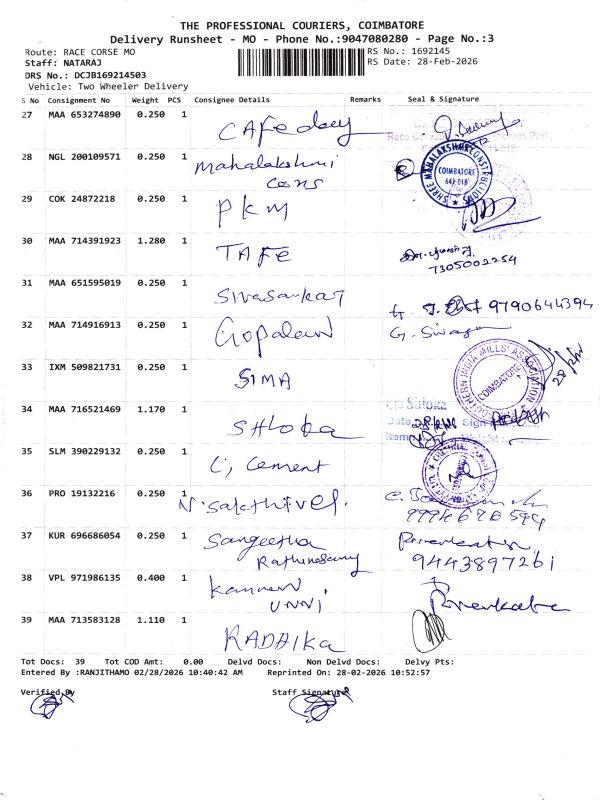 THE PROFESSIONAL COURIERS, COIMBATORE
Delivery Runsheet - MO - Phone No.:9047080280 - Page No.:3
Route: RACE CORSE MO
RS No.: 1692145
Staff: NATARAJ
RS Date: 28-Feb-2026
DRS No.: DCJB169214503
Vehicle: Two Wheeler Delivery
S No Consignment No Weight PCS Consignee Details Remarks Seal & Signature
27 MAA 653274890 0.250 1 CAFe day
28 NGL 200109571 0.250 1 Mahalakshmi
cons
SHREE MAHALAKSHMI CONSTRUCTIONS
COIMBATORE
641 018
29 COK 24872218 0.250 1 PKM
30 MAA 714391923 1.280 1 TAFE
7305002254
31 MAA 651595019 0.250 1 Sivasankar 9790644394
32 MAA 714916913 0.250 1 Gopalan G. Sivaga
33 IXM 509821731 0.250 1 SIMA
SOUTHERN INDIA MILLS' ASSOCIATION
COIMBATORE
34 MAA 716521469 1.170 1 SHloka
Sloka
Date 28/2/26 Sign
Item
35 SLM 390229132 0.250 1 Cement
36 PRO 19132216 0.250 1 N. Sakthivel.
37 KUR 696686054 0.250 1 Sangeetha
Rathinasamy
9443897261
38 VPL 971986135 0.400 1 kannan
UNNI
39 MAA 713583128 1.110 1 RADHIKA
Tot Docs: 39 Tot COD Amt: 0.00 Delvd Docs: Non Delvd Docs: Delvy Pts:
Entered By :RANJITHAMO 02/28/2026 10:40:42 AM Reprinted On: 28-02-2026 10:52:57
Verified By Staff Signature